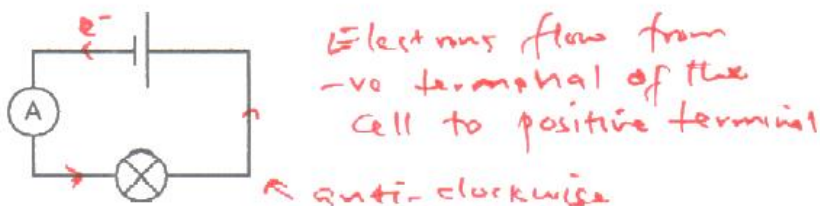 e⁻
Electrons flow from
-ve terminal of the
cell to positive terminal
A
anti-clockwise